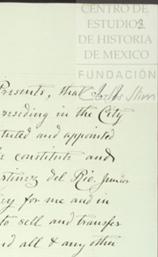 CENTRO DE
ESTUDIOS
DE HISTORIA
DE MEXICO
FUNDACIÓN
Carlos Slim
Presents, that
residing in the City
tuted and appointed
constitute and
rtinez del Rio, Junior
for me and in
to sell and transfer
all & any other